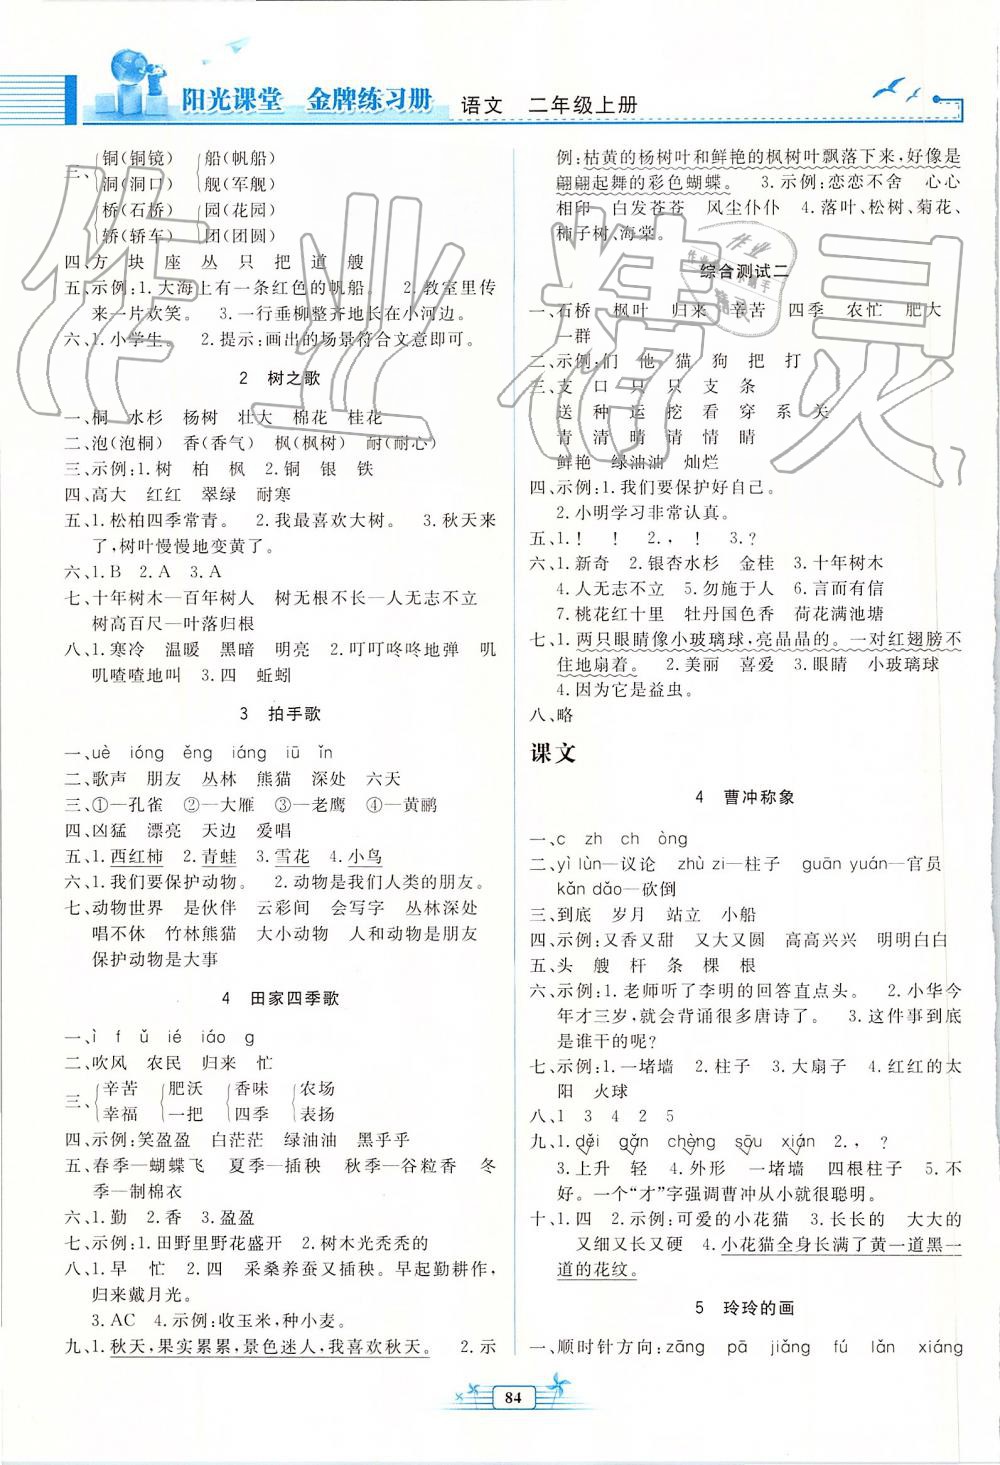 阳光课堂 金牌练习册 语文 二年级上册
三、铜(铜镜) 船(帆船)
洞(洞口) 舰(军舰)
桥(石桥) 园(花园)
轿(轿车) 团(团圆)
四、方 块 座 丛 只 把 道 艘
五、示例:1.大海上有一条红色的帆船。 2.教室里传
来一片欢笑。 3.一行垂柳整齐地长在小河边。
六、1.小学生。 2.提示:画出的场景符合文意即可。
2 树之歌
一、桐 水杉 杨树 壮大 棉花 桂花
二、泡(泡桐) 香(香气) 枫(枫树) 耐(耐心)
三、示例:1.树 柏 枫 2.铜 银 铁
四、高大 红红 翠绿 耐寒
五、1.松柏四季常青。 2.我最喜欢大树。 3.秋天来
了,树叶慢慢地变黄了。
六、1.B 2.A 3.A
七、十年树木—百年树人 树无根不长—人无志不立
树高百尺—叶落归根
八、1.寒冷 温暖 黑暗 明亮 2.叮叮咚咚地弹 叽
叽喳喳地叫 3.四 蚯蚓
3 拍手歌
一、uè ióng ěng iáng iū ǐn
二、歌声 朋友 丛林 熊猫 深处 六天
三、①—孔雀 ②—大雁 ③—老鹰 ④—黄鹂
四、凶猛 漂亮 天边 爱唱
五、1.西红柿 2.青蛙 3.雪花 4.小鸟
六、1.我们要保护动物。 2.动物是我们人类的朋友。
七、动物世界 是伙伴 云彩间 会写字 丛林深处
唱不休 竹林熊猫 大小动物 人和动物是朋友
保护动物是大事
4 田家四季歌
一、ì f ǔ ié iáo g
二、吹风 农民 归来 忙
三、辛苦 肥沃 香味 农场
幸福 一把 四季 表扬
四、示例:笑盈盈 白茫茫 绿油油 黑乎乎
五、春季—蝴蝶飞 夏季—插秧 秋季—谷粒香 冬
季—制棉衣
六、1.勤 2.香 3.盈盈
七、示例:1.田野里野花盛开 2.树木光秃秃的
八、1.早 忙 2.四 采桑养蚕又插秧。早起勤耕作,
归来戴月光。
3.AC 4.示例:收玉米,种小麦。
九、1.秋天,果实累累,景色迷人,我喜欢秋天。 2.示
例:枯黄的杨树叶和鲜艳的枫树叶飘落下来,好像是
翩翩起舞的彩色蝴蝶。 3.示例:恋恋不舍 心心
相印 白发苍苍 风尘仆仆 4.落叶、松树、菊花、
柿子树、海棠。
综合测试二
一、石桥 枫叶 归来 辛苦 四季 农忙 肥大
一群
二、示例:们 他 猫 狗 把 打
三、支 口 只 只 支 条
送 种 运 挖 看 穿 系 关
青 清 晴 请 情 睛
鲜艳 绿油油 灿烂
四、示例:1.我们要保护好自己。
2.小明学习非常认真。
五、1.！ ！ 2.， ！ 3.？
六、1.新奇 2.银杏水杉 金桂 3.十年树木
4.人无志不立 5.勿施于人 6.言而有信
7.桃花红十里 牡丹国色香 荷花满池塘
七、1.两只眼睛像小玻璃球,亮晶晶的。一对红翅膀不
住地扇着。 2.美丽 喜爱 3.眼睛 小玻璃球
4.因为它是益虫。
八、略
课文
4 曹冲称象
一、c zh ch òng
二、yì lùn—议论 zhù zi—柱子 guān yuán—官员
kǎn dǎo—砍倒
三、到底 岁月 站立 小船
四、示例:又香又甜 又大又圆 高高兴兴 明明白白
五、头 艘 杆 条 棵 根
六、示例:1.老师听了李明的回答直点头。 2.小华今
年才三岁,就会背诵很多唐诗了。 3.这件事到底
是谁干的呢?
七、示例:1.一堵墙 2.柱子 3.大扇子 4.红红的太
阳 火球
八、1 3 4 2 5
九、1.děi gǎn chèng sōu xián 2.， ？
3.上升 轻 4.外形 一堵墙 四根柱子 5.不
好。一个“才”字强调曹冲从小就很聪明。
十、1.四 2.示例:可爱的小花猫 3.长长的 大大的
又细又长又硬 4.小花猫全身长满了黄一道黑一
道的花纹。
5 玲玲的画
一、顺时针方向:zāng pā jiǎng fú lǎn xiáng
84
作业精灵